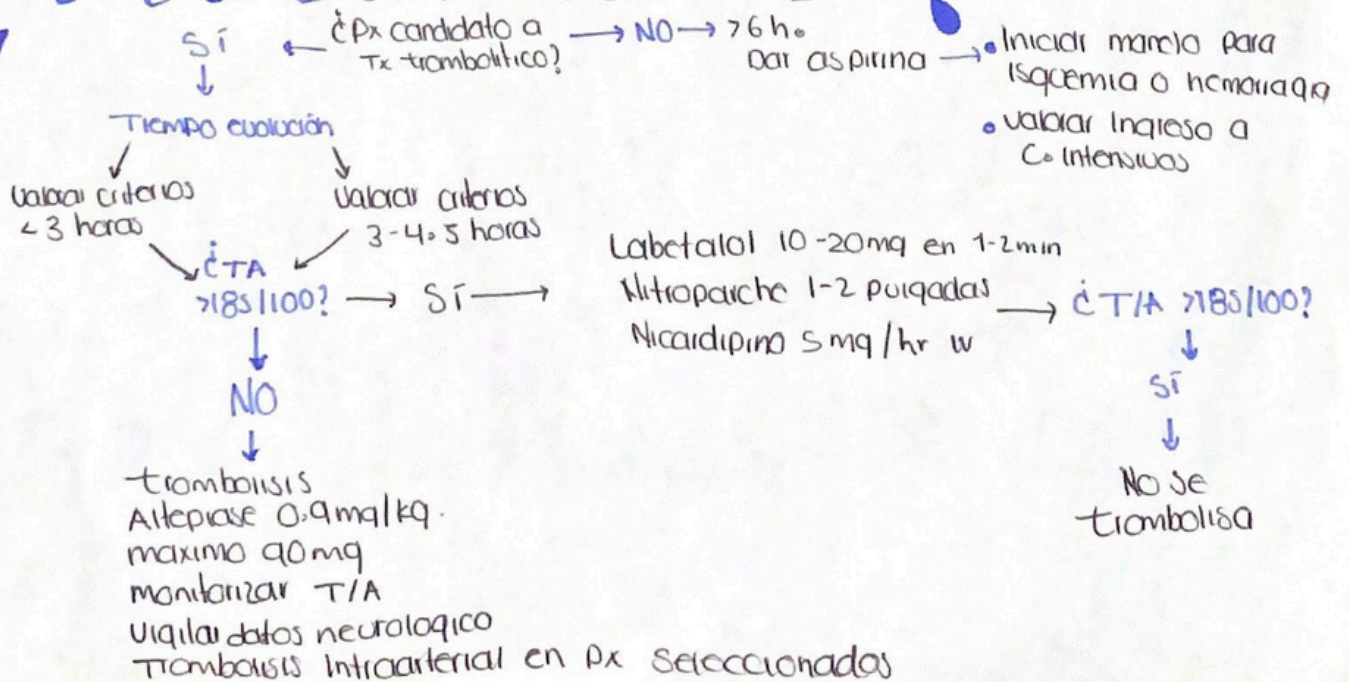 ¿Px candidato a
Tx trombolitico?
SÍ
NO
>6h.
Dar aspirina
• Iniciar manejo para
isquemia o hemorragia
• valorar ingreso a
C. Intensivos
Tiempo evolución
Valorar criterios
<3 horas
Valorar criterios
3-4.5 horas
¿TA
>185/100?
SÍ
Labetalol 10-20mg en 1-2min
Nitroparche 1-2 pulgadas
Nicardipino 5mg/hr IV
¿T/A >185/100?
SÍ
No se
trombolisa
NO
trombolisis
Alteplase 0.9mg/kg.
maximo 90mg
monitorizar T/A
Vigilar datos neurologico
Trombolisis Intraarterial en Px seleccionados